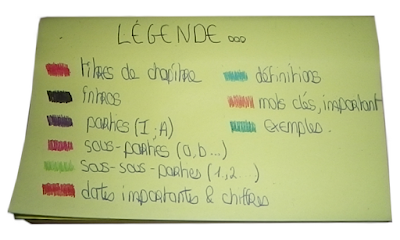 LÉGENDE...
titres de chapitre
intros
parties (I ; A)
sous-parties (a, b...)
sous-sous-parties (1, 2...)
dates importantes & chiffres
définitions
mots clés, important
exemples.